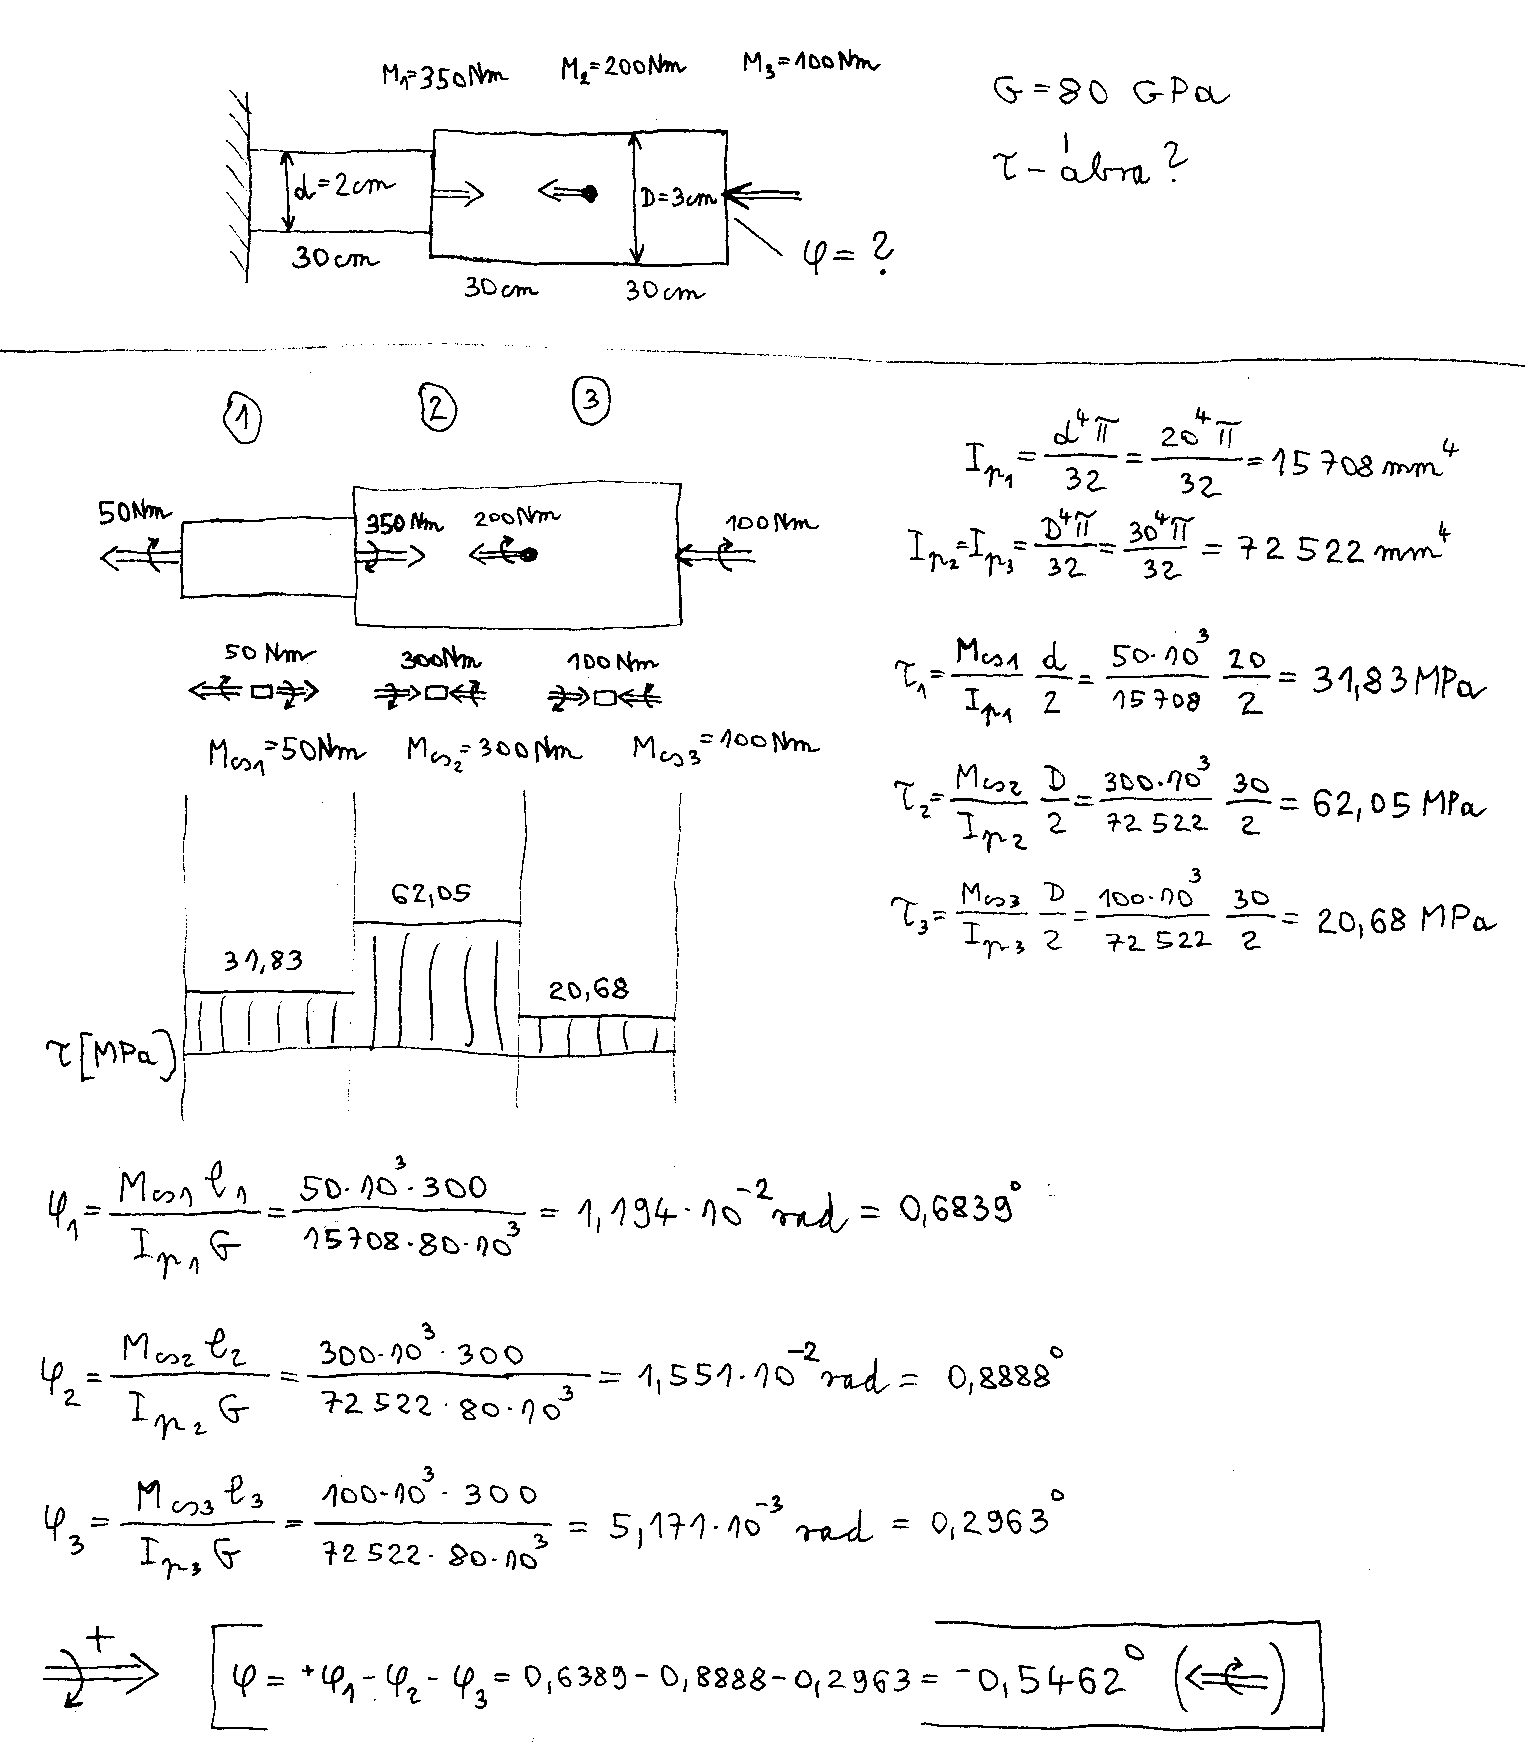 M₁=350Nm M₂=200Nm M₃=100Nm
G=80 GPa
τ-ábra?
d=2cm
D=3cm
30cm
30cm
30cm
φ=?
1 2 3
50Nm
350Nm
200Nm
100Nm
50Nm 300Nm 100Nm
Mcs₁=50Nm Mcs₂=300Nm Mcs₃=100Nm
Ip₁ = d⁴π/32 = 20⁴π/32 = 15708 mm⁴
Ip₂=Ip₃= D⁴π/32 = 30⁴π/32 = 72 522 mm⁴
τ₁= Mcs1/Ip1 d/2 = 50·10³/15708 20/2 = 31,83 MPa
τ₂= Mcs2/Ip2 D/2 = 300·10³/72 522 30/2 = 62,05 MPa
τ₃= Mcs3/Ip3 D/2 = 100·10³/72 522 30/2 = 20,68 MPa
62,05
31,83
20,68
τ[MPa]
φ₁= Mcs1 ℓ₁/Ip₁ G = 50·10³·300/15708·80·10³ = 1,194·10⁻² rad = 0,6839°
φ₂= Mcs2 ℓ₂/Ip₂ G = 300·10³·300/72 522·80·10³ = 1,551·10⁻² rad = 0,8888°
φ₃= Mcs3 ℓ₃/Ip₃ G = 100·10³·300/72 522·80·10³ = 5,171·10⁻³ rad = 0,2963°
+
φ= +φ₁-φ₂-φ₃= 0,6389-0,8888-0,2963= -0,5462°